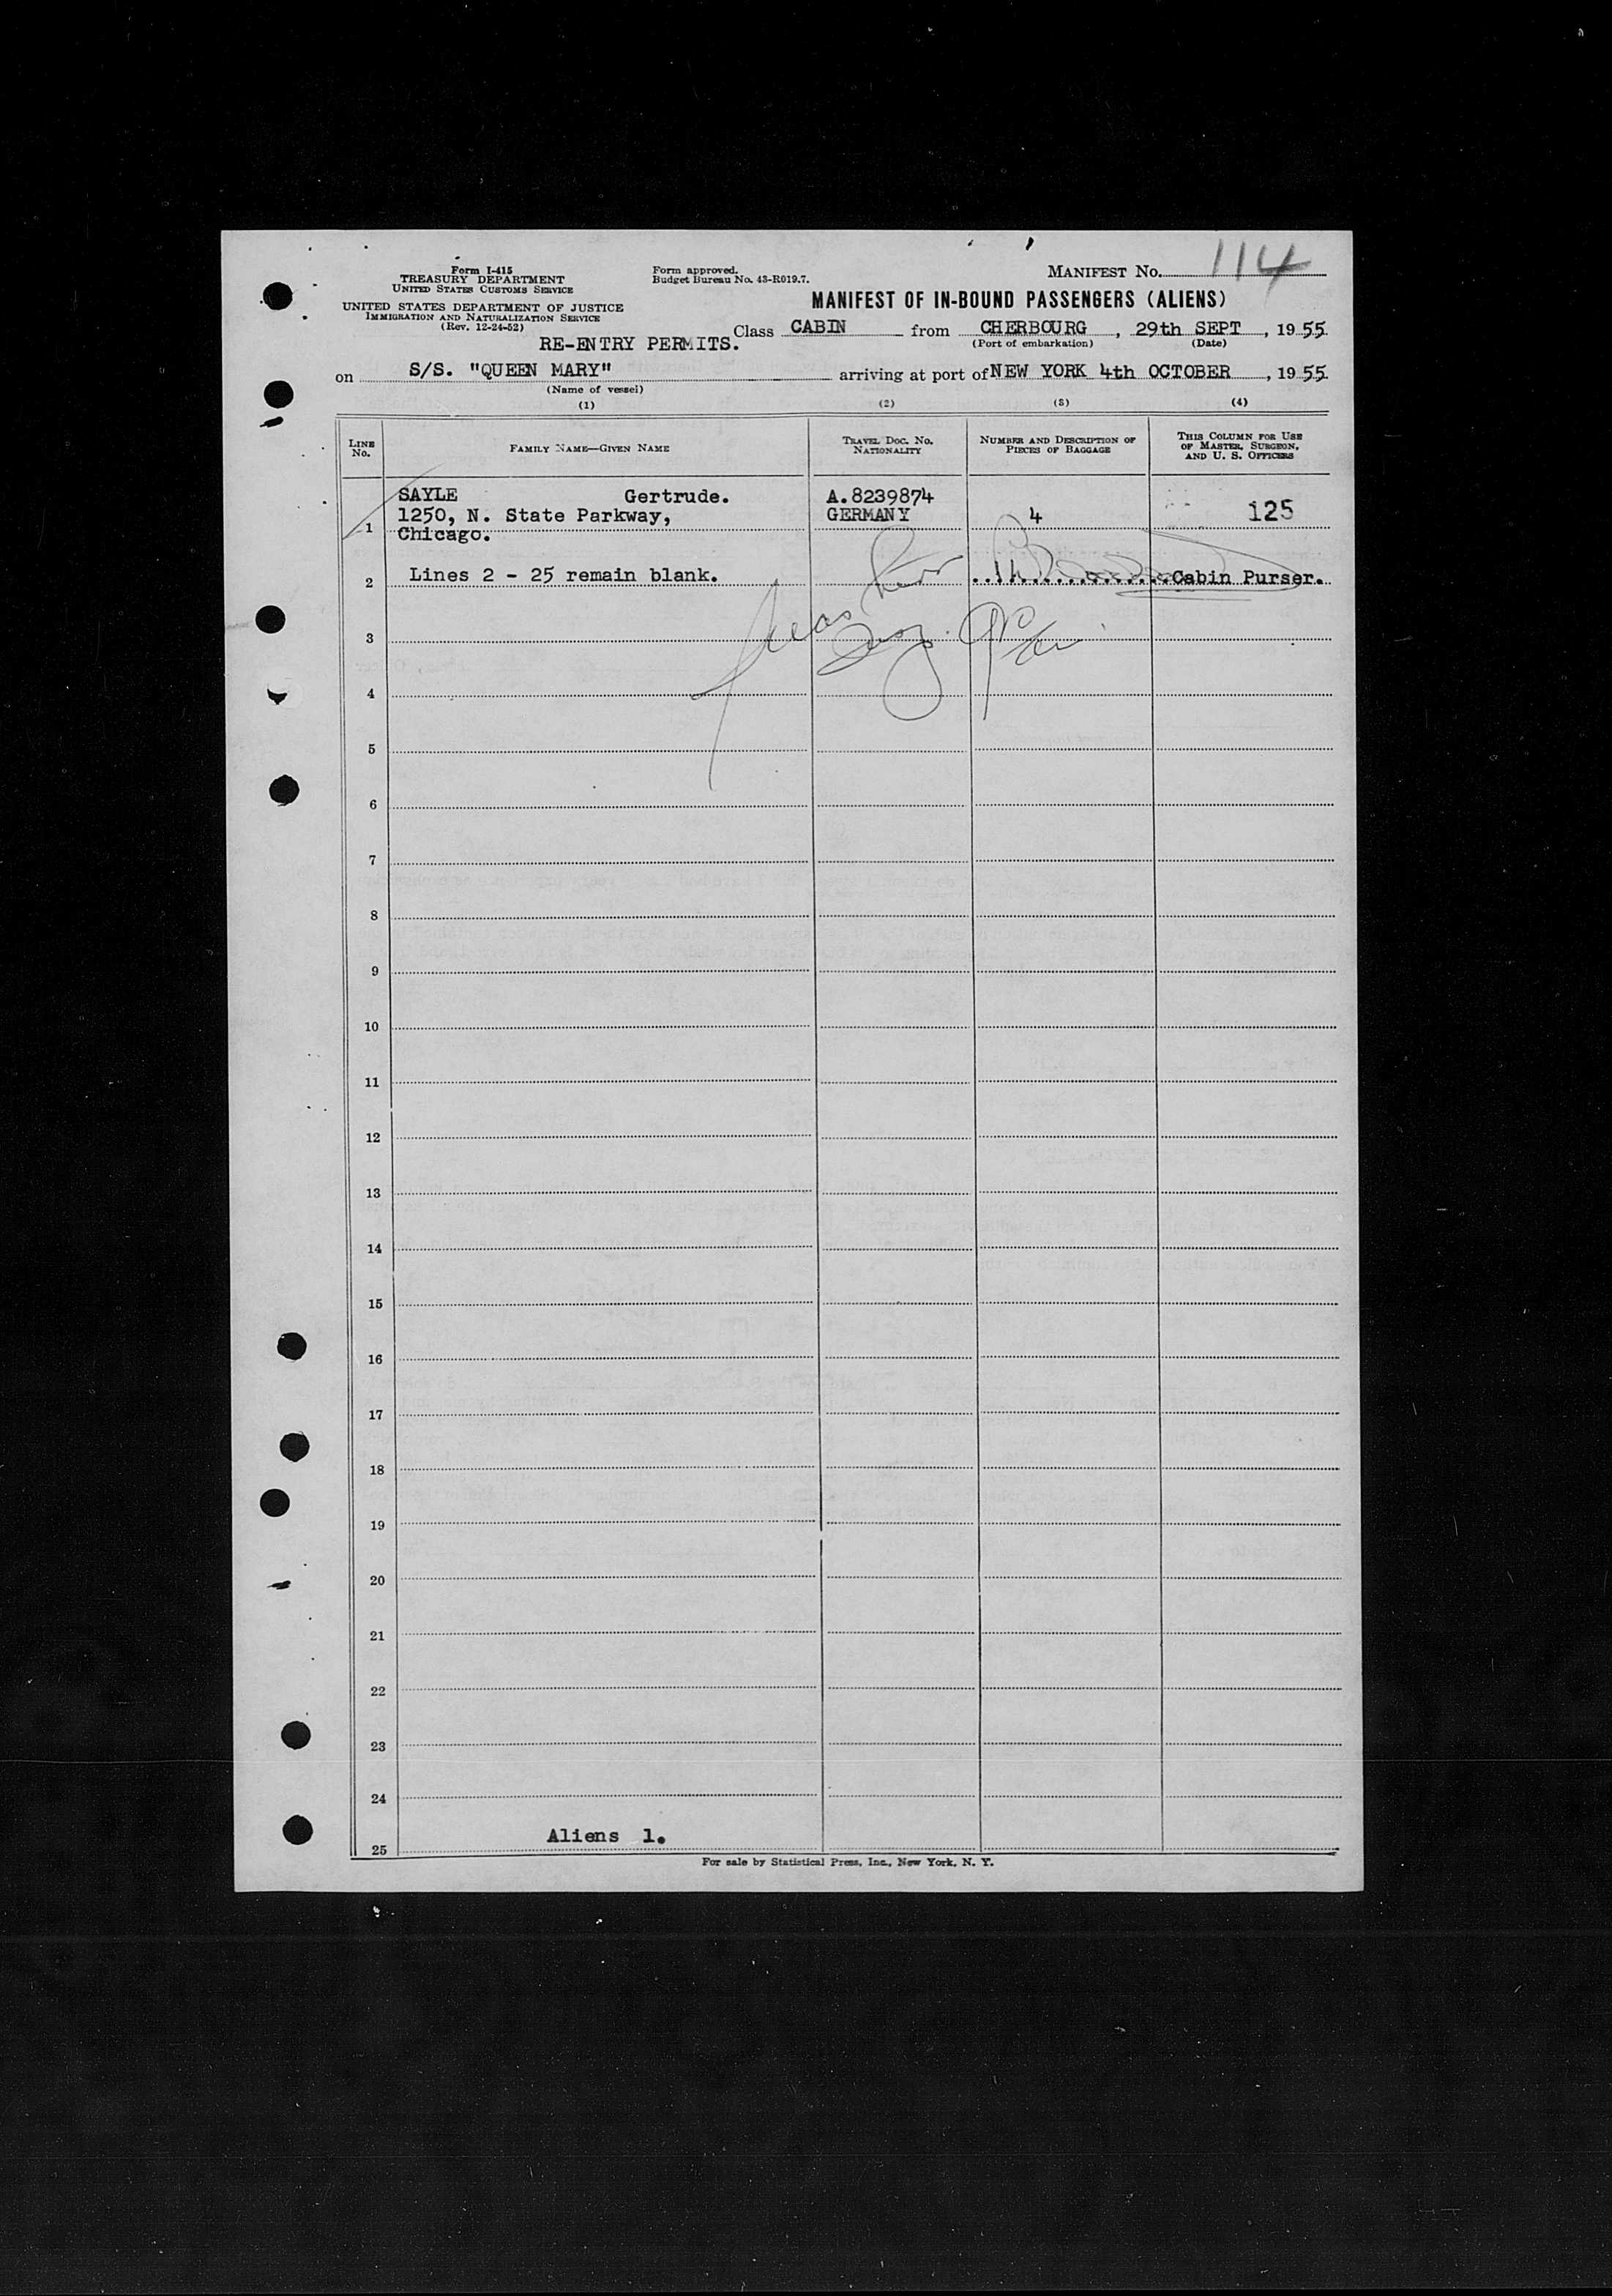 Form I-415
TREASURY DEPARTMENT
UNITED STATES CUSTOMS SERVICE
UNITED STATES DEPARTMENT OF JUSTICE
IMMIGRATION AND NATURALIZATION SERVICE
(Rev. 12-24-52)
Form approved.
Budget Bureau No. 43-R019.7.
MANIFEST No. 114
MANIFEST OF IN-BOUND PASSENGERS (ALIENS)
RE-ENTRY PERMITS.
Class CABIN from CHERBOURG, 29th SEPT, 1955
(Port of embarkation) (Date)
on S/S. "QUEEN MARY" arriving at port of NEW YORK 4th OCTOBER, 1955
(Name of vessel)
(1) (2) (3) (4)
LINE No. FAMILY NAME—GIVEN NAME TRAVEL DOC. NO. NATIONALITY NUMBER AND DESCRIPTION OF PIECES OF BAGGAGE THIS COLUMN FOR USE OF MASTER, SURGEON, AND U. S. OFFICERS
SAYLE Gertrude. A.8239874
1250, N. State Parkway, GERMANY 4 125
1 Chicago.
2 Lines 2 - 25 remain blank. Cabin Purser.
3
4
5
6
7
8
9
10
11
12
13
14
15
16
17
18
19
20
21
22
23
24
Aliens 1.
25
For sale by Statistical Press, Inc., New York, N. Y.